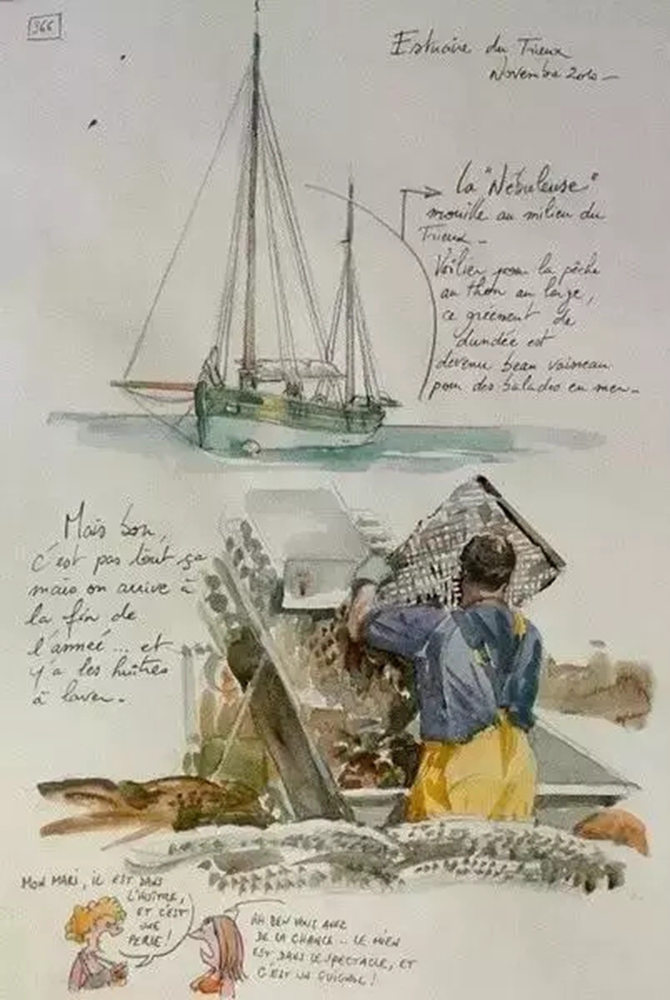 366
Estuaire du Trieux
Novembre 2010 _
La "Nébuleuse"
mouille au milieu du
Trieux _
Voilier pour la pêche
au thon au large,
ce gréement de
dundée est
devenu beau vaisseau
pour des balades en mer _
Mais bon,
c'est pas tout ça
mais on arrive à
la fin de
l'année ... et
y'a les huîtres
à laver _
MON MARI, IL EST DANS
L'HUÎTRE,
ET C'EST
UNE
PERLE !
AH BEN VOUS AVEZ
DE LA CHANCE .. LE MIEN
EST DANS LE SPECTACLE, ET
C'EST UN GUIGNOL !